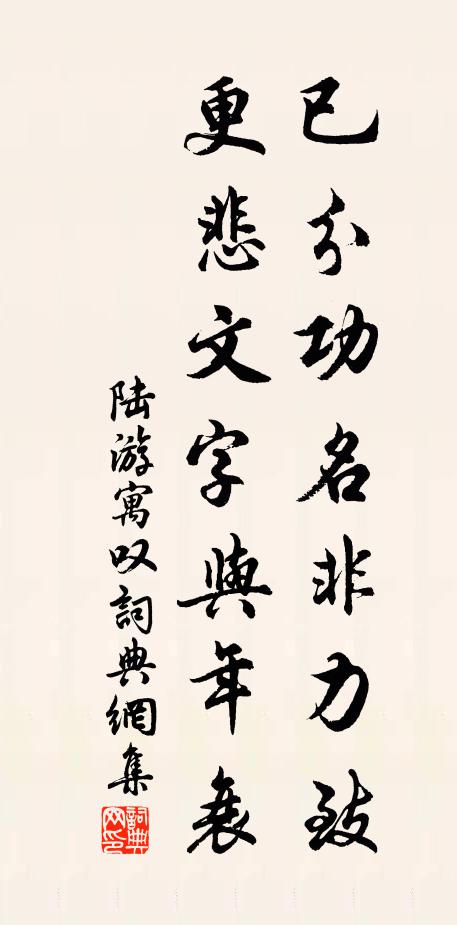 已分功名非力致
更悲文字與年衰
陆游寓叹詞典網集
詞典网印